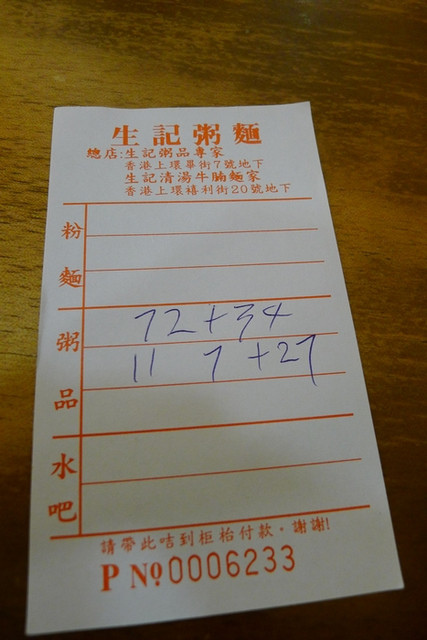 生記粥麵
總店:生記粥品專家
香港上環畢街7號地下
生記清湯牛腩麵家
香港上環禧利街20號地下
粉麵
粥品
72+34
11 7 +27
水吧
請帶此咭到柜枱付款。謝謝!
P Nº 0006233